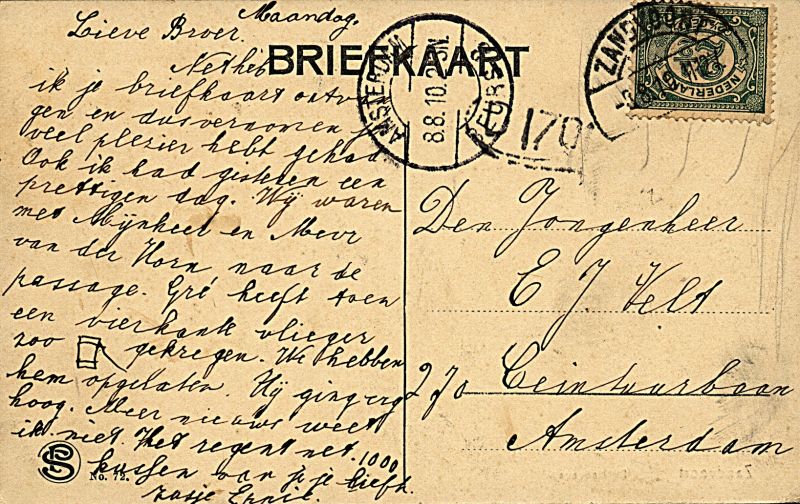 Maandag.
Lieve Broer.
BRIEFKAART
Net heb
ik je briefkaart ontv
gen en dus vernomen
veel plezier hebt gehad.
Ook ik had gisteren een
prettigen dag. Wij waren
met Mijnheer en Mevr
van der Horn naar de
passage. Gré heeft toen
een vierkante vlieger
zoo gekregen. We hebben
hem opgelaten. Hij ging erg
hoog. Meer nieuws weet
ik niet. Het regent net. 1000
kussen van je je liefh.
zusje Ennie.
No. 72.
AMSTERDAM
8.8.10. 2-3N.
170
ZANDVOORT
NEDERLAND
2½
Den Jongenheer
E J. Velt
270 Ceintuurbaan
Amsterdam